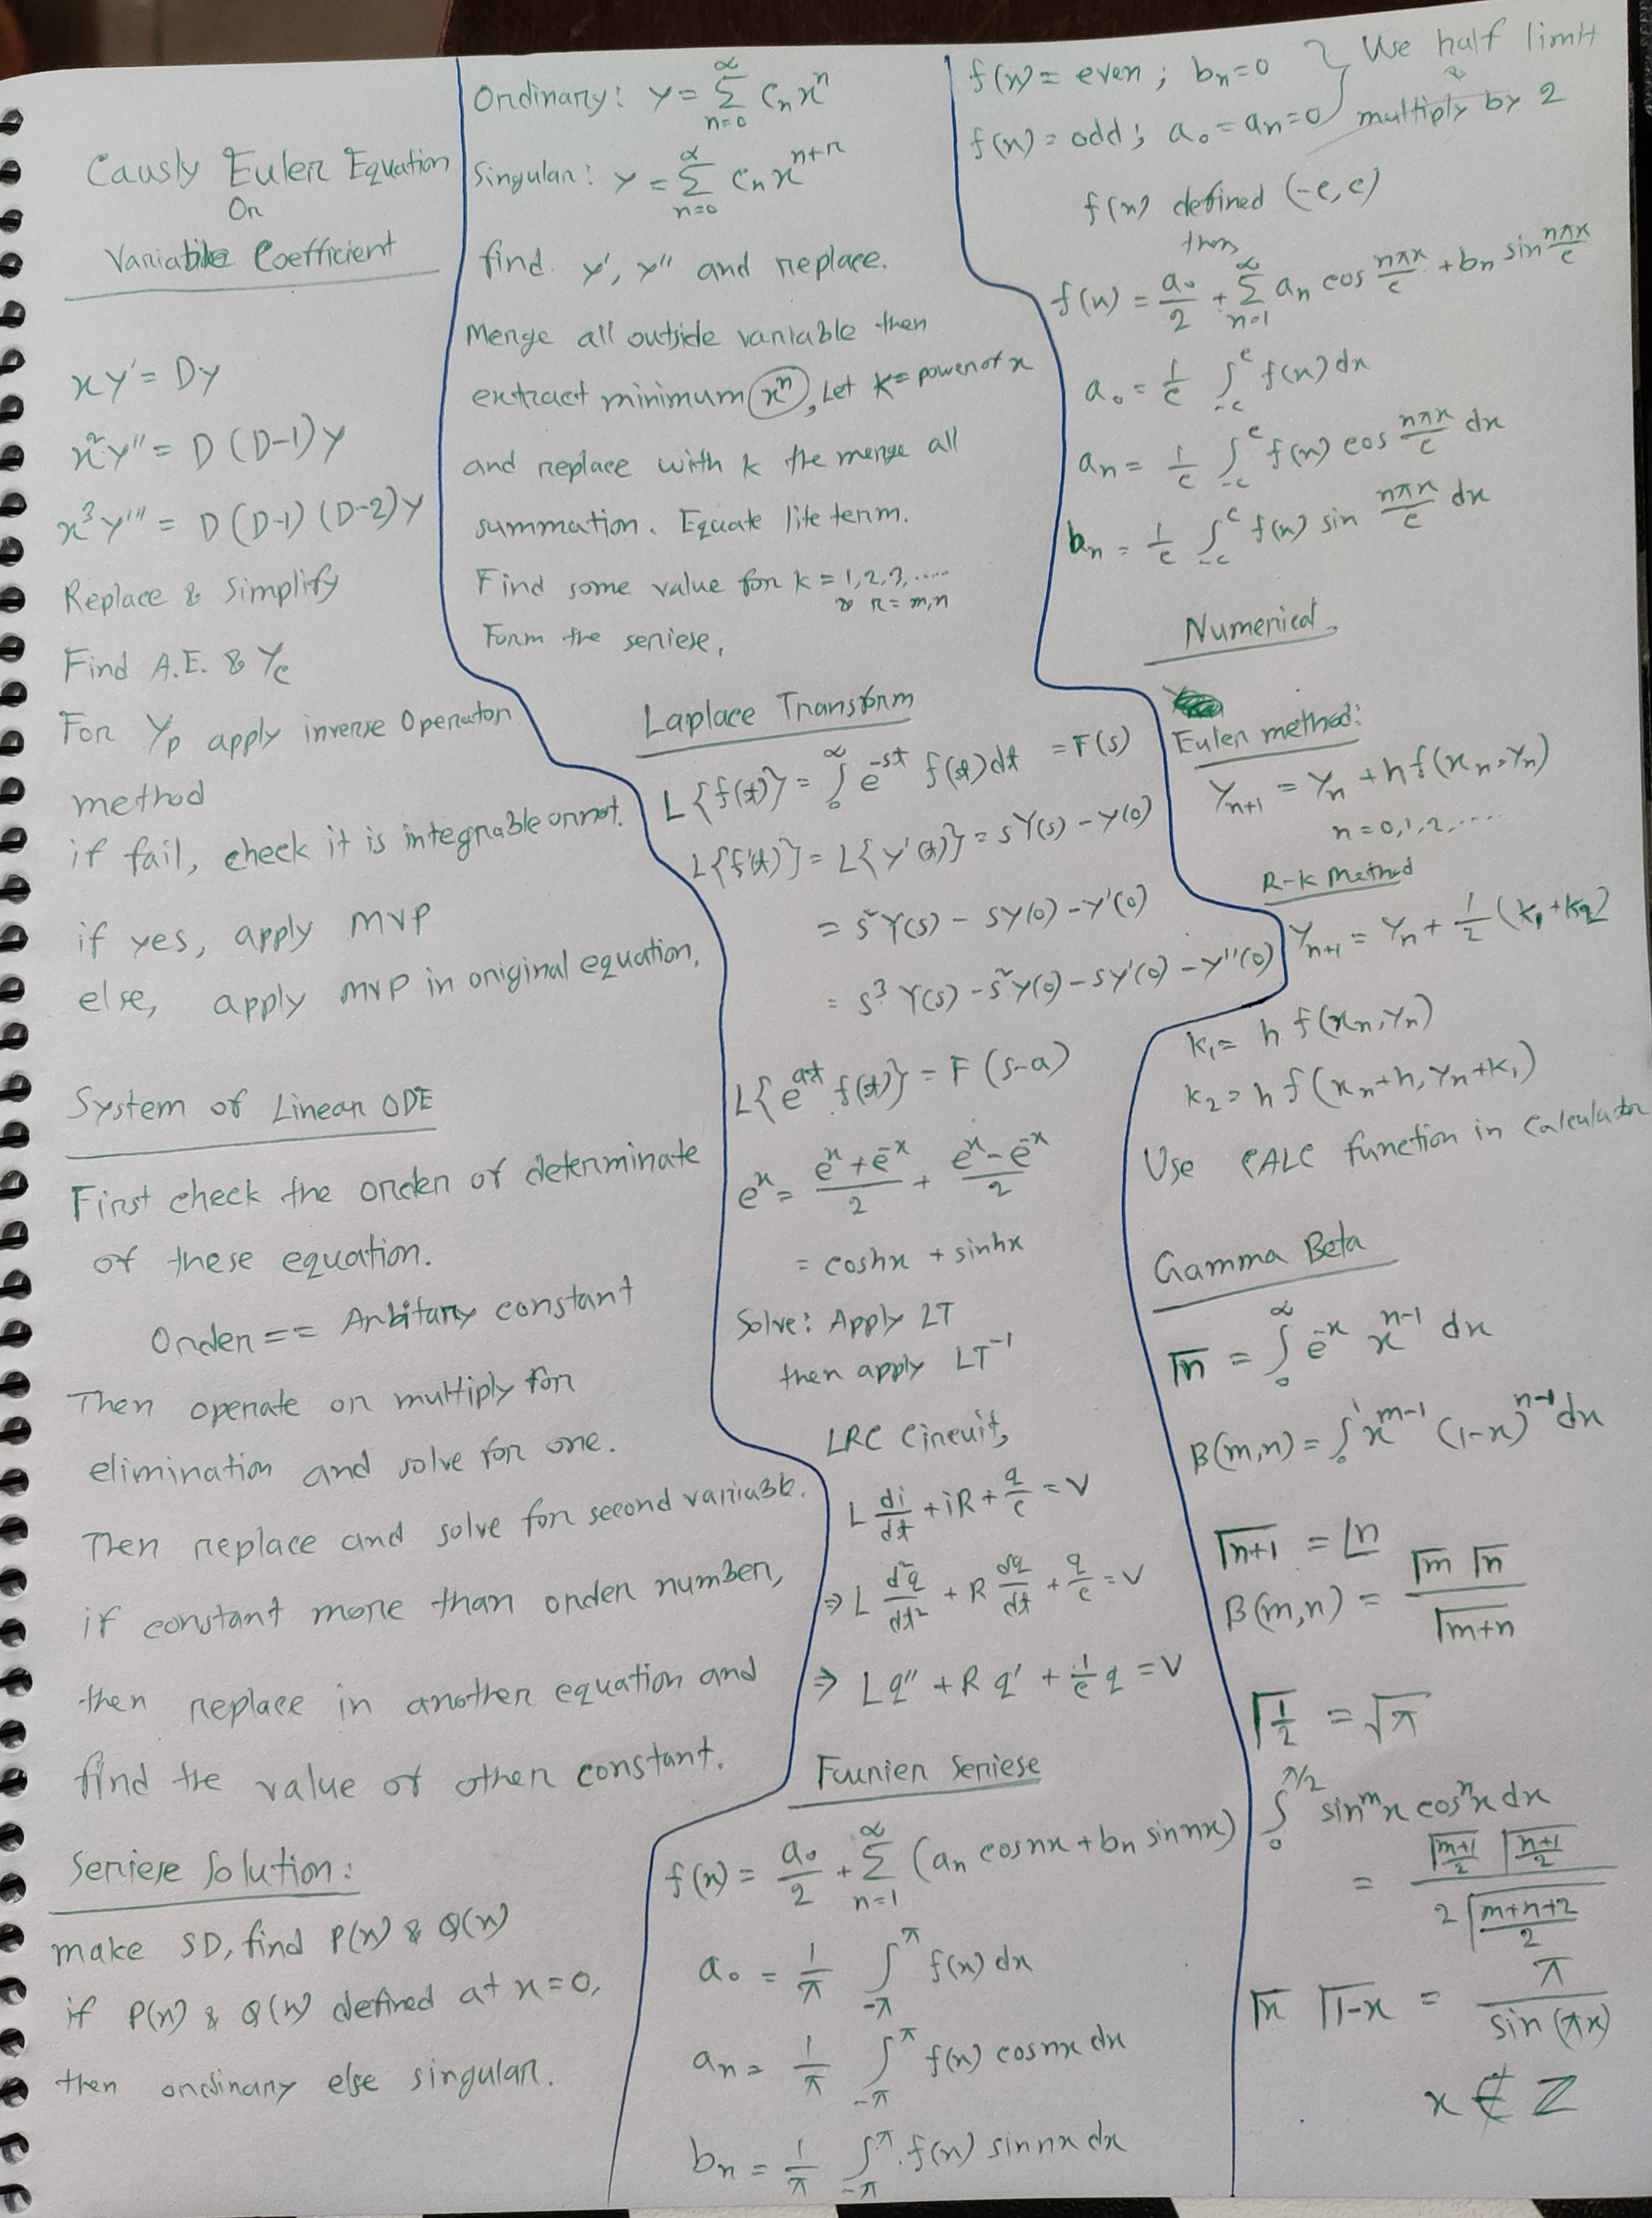 Causly Euler Equation
Or
Variable Coefficient
xy' = Dy
x²y'' = D(D-1)y
x³y''' = D(D-1)(D-2)y
Replace & Simplify
Find A.E. & Yc
For Yp apply inverse Operator
method
if fail, check it is integrable or not.
if yes, apply MVP
else, apply MVP in original equation.
System of Linear ODE
First check the order of determinate
of these equation.
Order == Arbitary constant
Then operate or multiply for
elimination and solve for one.
Then replace and solve for second variable.
if constant more than order number,
then replace in another equation and
find the value of other constant.
Seriese Solution:
make SD, find P(x) & Q(x)
if P(x) & Q(x) defined at x=0,
then ordinary else singular.
Ordinary: y = ∑_{n=0}^{∝} Cₙxⁿ
Singular: y = ∑_{n=0}^{∝} Cₙx^{n+r}
find y', y'' and replace.
Merge all outside variable then
extract minimum xⁿ, Let k = power of x
and replace with k the merge all
summation. Equate like term.
Find some value for k = 1,2,3,.....
& r = m,n
Form the seriese.
Laplace Transform
L{f(t)} = ∫₀^∝ e^{-st} f(t)dt = F(s)
L{f'(t)} = L{y'(t)} = sY(s) - y(0)
= s²Y(s) - sy(0) - y'(0)
= s³Y(s) - s²y(0) - sy'(0) - y''(0)
L{e^{at} f(t)} = F(s-a)
eˣ = (eˣ+e⁻ˣ)/2 + (eˣ-e⁻ˣ)/2
= coshx + sinhx
Solve: Apply LT
then apply LT⁻¹
LRC Circuit,
L di/dt + iR + q/c = V
⇒ L d²q/dt² + R dq/dt + q/c = V
⇒ Lq'' + Rq' + 1/c q = V
Fourier Seriese
f(x) = a₀/2 + ∑_{n=1}^{∝} (aₙ cosnx + bₙ sinnx)
a₀ = 1/π ∫_{-π}^{π} f(x) dx
aₙ = 1/π ∫_{-π}^{π} f(x) cosnx dx
bₙ = 1/π ∫_{-π}^{π} f(x) sinnx dx
f(x) = even ; bₙ=0 } Use half limit
f(x) = odd ; a₀ = aₙ = 0 & multiply by 2
f(x) defined (-c, c)
then
f(x) = a₀/2 + ∑_{n=1}^{∝} aₙ cos nπx/c + bₙ sin nπx/c
a₀ = 1/c ∫_{-c}^{c} f(x) dx
aₙ = 1/c ∫_{-c}^{c} f(x) cos nπx/c dx
bₙ = 1/c ∫_{-c}^{c} f(x) sin nπx/c dx
Numerical.
Euler method:
Yₙ₊₁ = Yₙ + hf(xₙ,Yₙ)
n = 0,1,2,.....
R-K Method
Yₙ₊₁ = Yₙ + 1/2 (k₁+k₂)
k₁ = h f(xₙ,Yₙ)
k₂ = h f(xₙ+h, Yₙ+k₁)
Use CALC function in Calculator
Gamma Beta
Γn = ∫₀^∝ e⁻ˣ x^{n-1} dx
B(m,n) = ∫₀¹ x^{m-1} (1-x)^{n-1} dx
Γn+1 = ⌊n
B(m,n) = Γm Γn / Γm+n
Γ1/2 = √π
∫₀^{π/2} sinᵐx cosⁿx dx
= Γ(m+1)/2 Γ(n+1)/2 / 2Γ(m+n+2)/2
Γx Γ1-x = π / sin(πx)
x ∉ Z